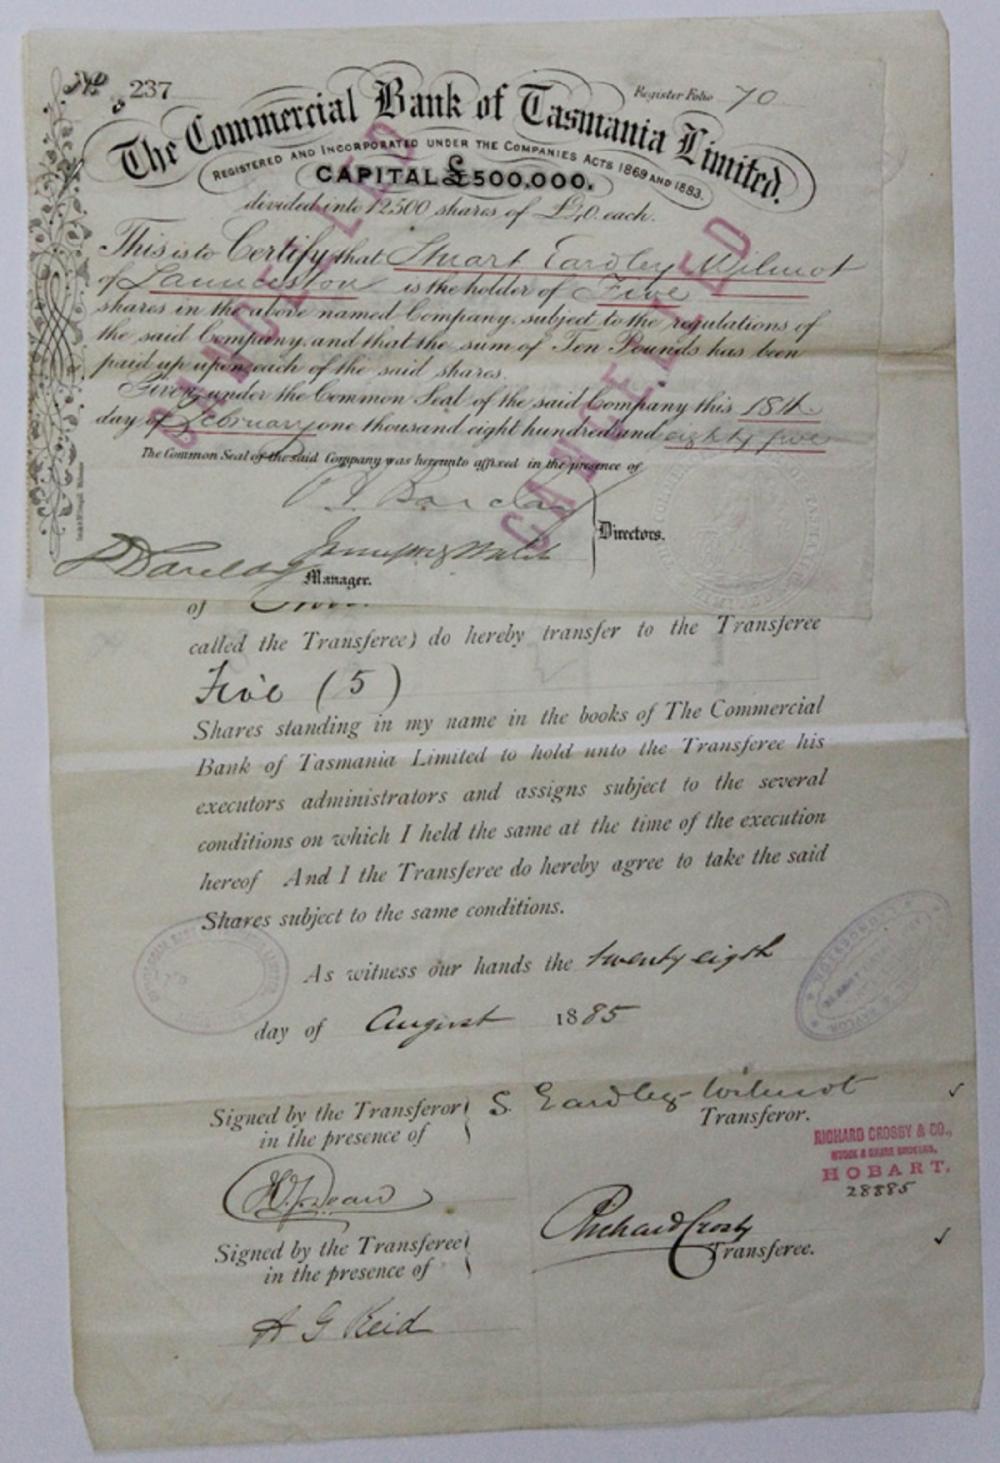 No 237
Register Folio 70
The Commercial Bank of Tasmania Limited.
REGISTERED AND INCORPORATED UNDER THE COMPANIES ACTS 1869 AND 1883.
CAPITAL £500,000.
divided into 12500 shares of £40 each.
This is to Certify that Stuart Eardley Wilmot
of Launceston is the holder of Five
shares in the above named Company, subject to the regulations of
the said Company, and that the sum of Ten Pounds has been
paid up upon each of the said shares.
Given under the Common Seal of the said Company this 18th
day of February one thousand eight hundred and eighty five
The Common Seal of the said Company was hereunto affixed in the presence of
CANCELLED
CANCELLED
Barclay
Directors.
Manager.
of
called the Transferee) do hereby transfer to the Transferee
Five (5)
Shares standing in my name in the books of The Commercial
Bank of Tasmania Limited to hold unto the Transferee his
executors administrators and assigns subject to the several
conditions on which I held the same at the time of the execution
hereof And I the Transferee do hereby agree to take the said
Shares subject to the same conditions.
As witness our hands the twenty eigth
day of August 1885
Signed by the Transferor
in the presence of
S. Eardley-Wilmot
Transferor.
RICHARD CROSBY & CO.,
STOCK & SHARE BROKERS,
HOBART.
28885
Signed by the Transferee
in the presence of
Richard Crosby
Transferee.
A G Reid